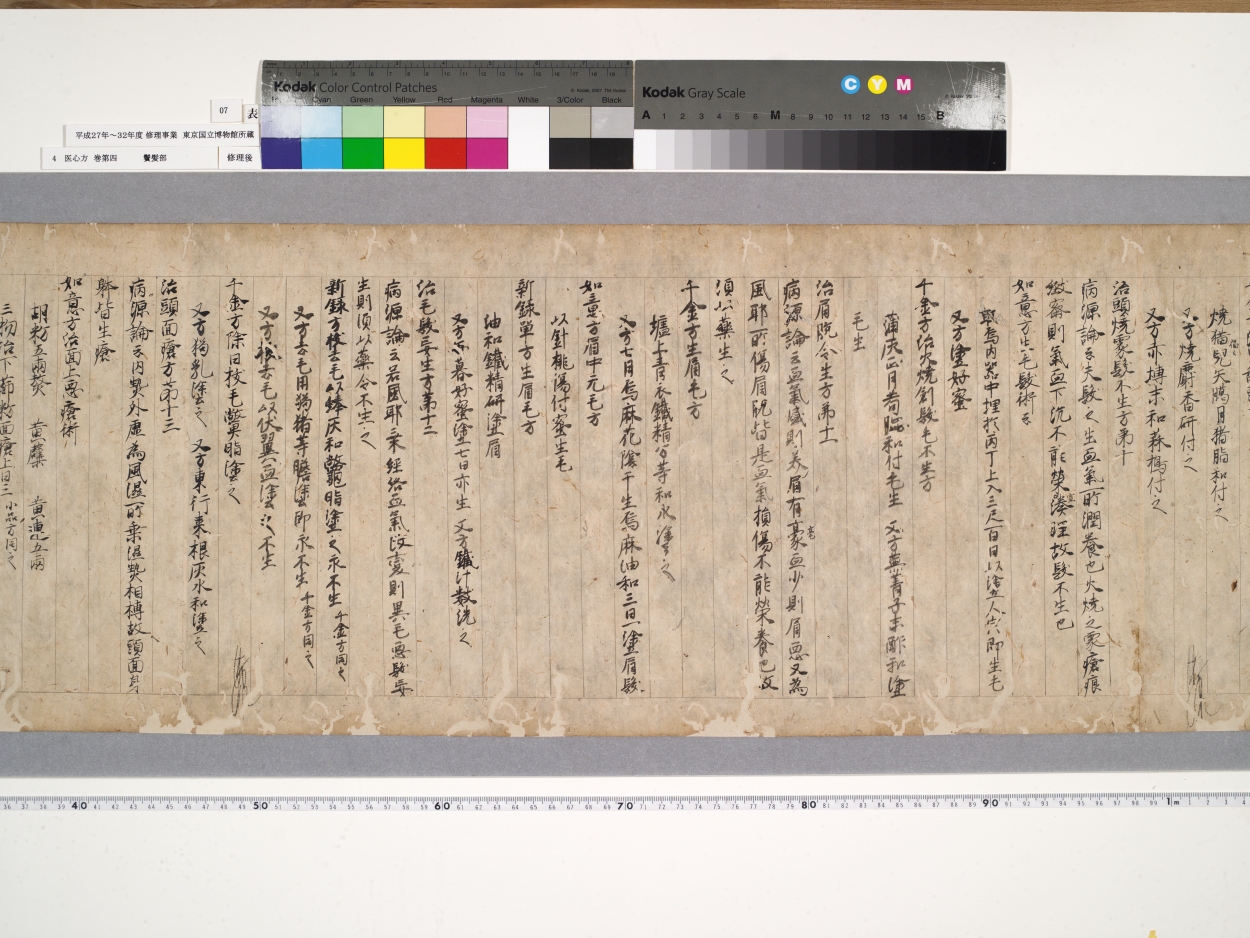 07 表
平成27年～32年度 修理事業 東京国立博物館所蔵
4 医心方 巻第四 鬢髪部 修理後
Kodak Color Control Patches
Cyan Green Yellow Red Magenta White 3/Color Black
Kodak Gray Scale
C Y M
A 1 2 3 4 5 6 M 8 9 10 11 12 13 14 15 B
燒猫兒矢臈月猪脂和付之
又方燒麝香研付之
又方亦塼末和蒜搗付之
治頭燒處髮不生方第十
病源論云夫髮之生血氣所潤養也火燒之處瘡痕
緻密則氣血下沉不能榮湊理故髮不生也
如意方生毛髮術云
取烏內器中埋於丙丁上入三尺百日以塗人即生毛
又方塗好蜜
千金方治火燒創髮毛不生方
蒲灰正月狗腦和付毛生 又方蕪菁子末酢和塗
毛生
治眉脫令生方第十一
病源論云血氣盛則養眉有豪血少則眉惡又為
風耶所傷眉脫皆是血氣損傷不能榮養也故
須以藥生之
千金方生眉毛方
墟上青衣鐵精分等和水塗之
又方七月烏麻花陰干生烏麻油和三日一塗眉髮
如意方眉中元毛方
以針桃湯付蜜生毛
新錄單方生眉毛方
油和鐵精研塗眉
又方暮好蜜塗七日亦生 又方鐵汁數洗之
治毛髮妄生方第十二
病源論云若風耶乘經絡血氣改變則異毛惡髮妄
生則須以藥令不生之
新錄方拔去毛以蜯灰和鼈脂塗之永不生 千金方同之
又方去毛用狗猪等膽塗即永不生 千金方同之
又方拔去毛以伏翼血塗之不生
千金方除日拔毛鱉脂塗之
又方狗乳塗之 又方東行棗根灰水和塗之
治頭面瘡方第十三
病源論云內熱外虛為風濕所乘濕熱相搏故頭面身
體皆生瘡
如意方治面上惡瘡術
胡粉五兩熬 黃蘗 黃連五兩
三物治下篩粉面瘡上日三 小品方同之
40 50 60 70 80 90 1m